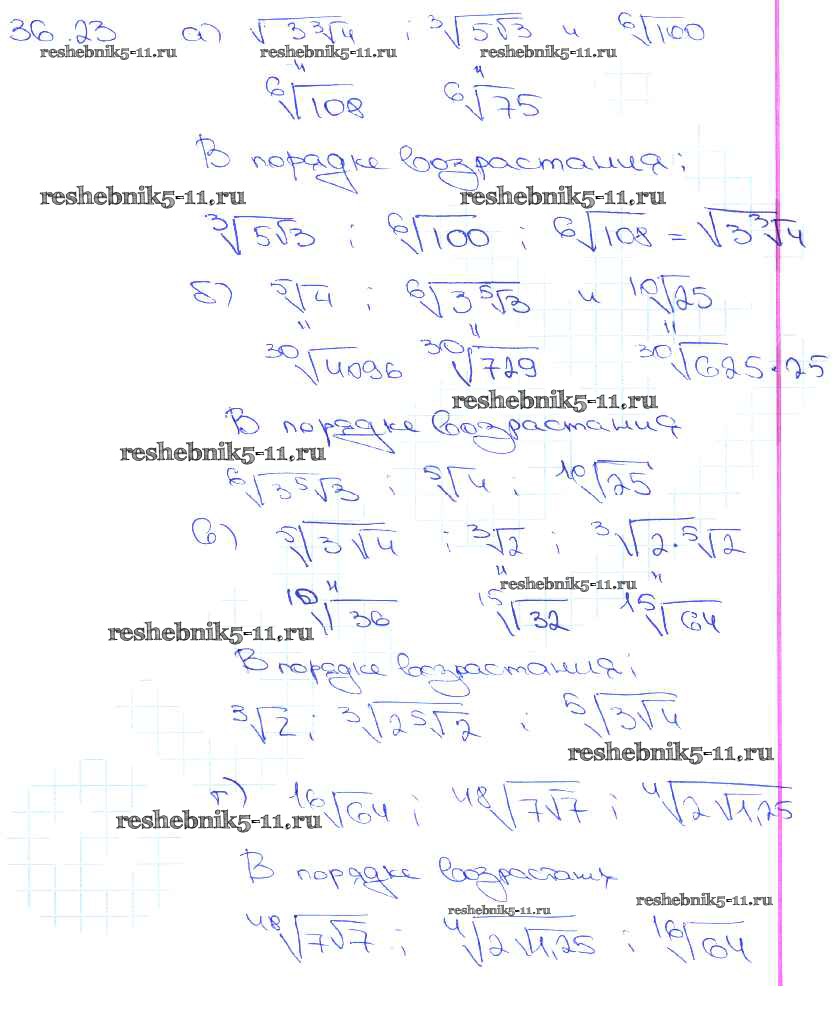 36.23 а) √(3∛4) ; ∛(5√3) и ⁶√100
reshebnik5-11.ru reshebnik5-11.ru reshebnik5-11.ru
" "
⁶√108 ⁶√75
В порядке возрастания:
reshebnik5-11.ru reshebnik5-11.ru
∛(5√3) ; ⁶√100 ; ⁶√108 = √(3∛4)
б) ⁵√4 ; ⁶√(3⁵√3) и ¹⁰√25
" " "
³⁰√4096 ³⁰√729 ³⁰√625·25
reshebnik5-11.ru
В порядке возрастания
reshebnik5-11.ru
⁶√(3⁵√3) ; ⁵√4 ; ¹⁰√25
в) ⁵√(3√4) ; ∛2 ; ∛(2·⁵√2)
reshebnik5-11.ru
" " "
¹⁰√36 ¹⁵√32 ¹⁵√64
reshebnik5-11.ru
В порядке возрастания:
∛2 ; ∛(2⁵√2) ; ⁵√(3√4)
reshebnik5-11.ru
г) ¹⁶√64 ; ⁴⁸√(7√7) ; ⁴√(2√1,25)
reshebnik5-11.ru
В порядке возрастания
reshebnik5-11.ru reshebnik5-11.ru
⁴⁸√(7√7) ; ⁴√(2√1,25) ; ¹⁶√64